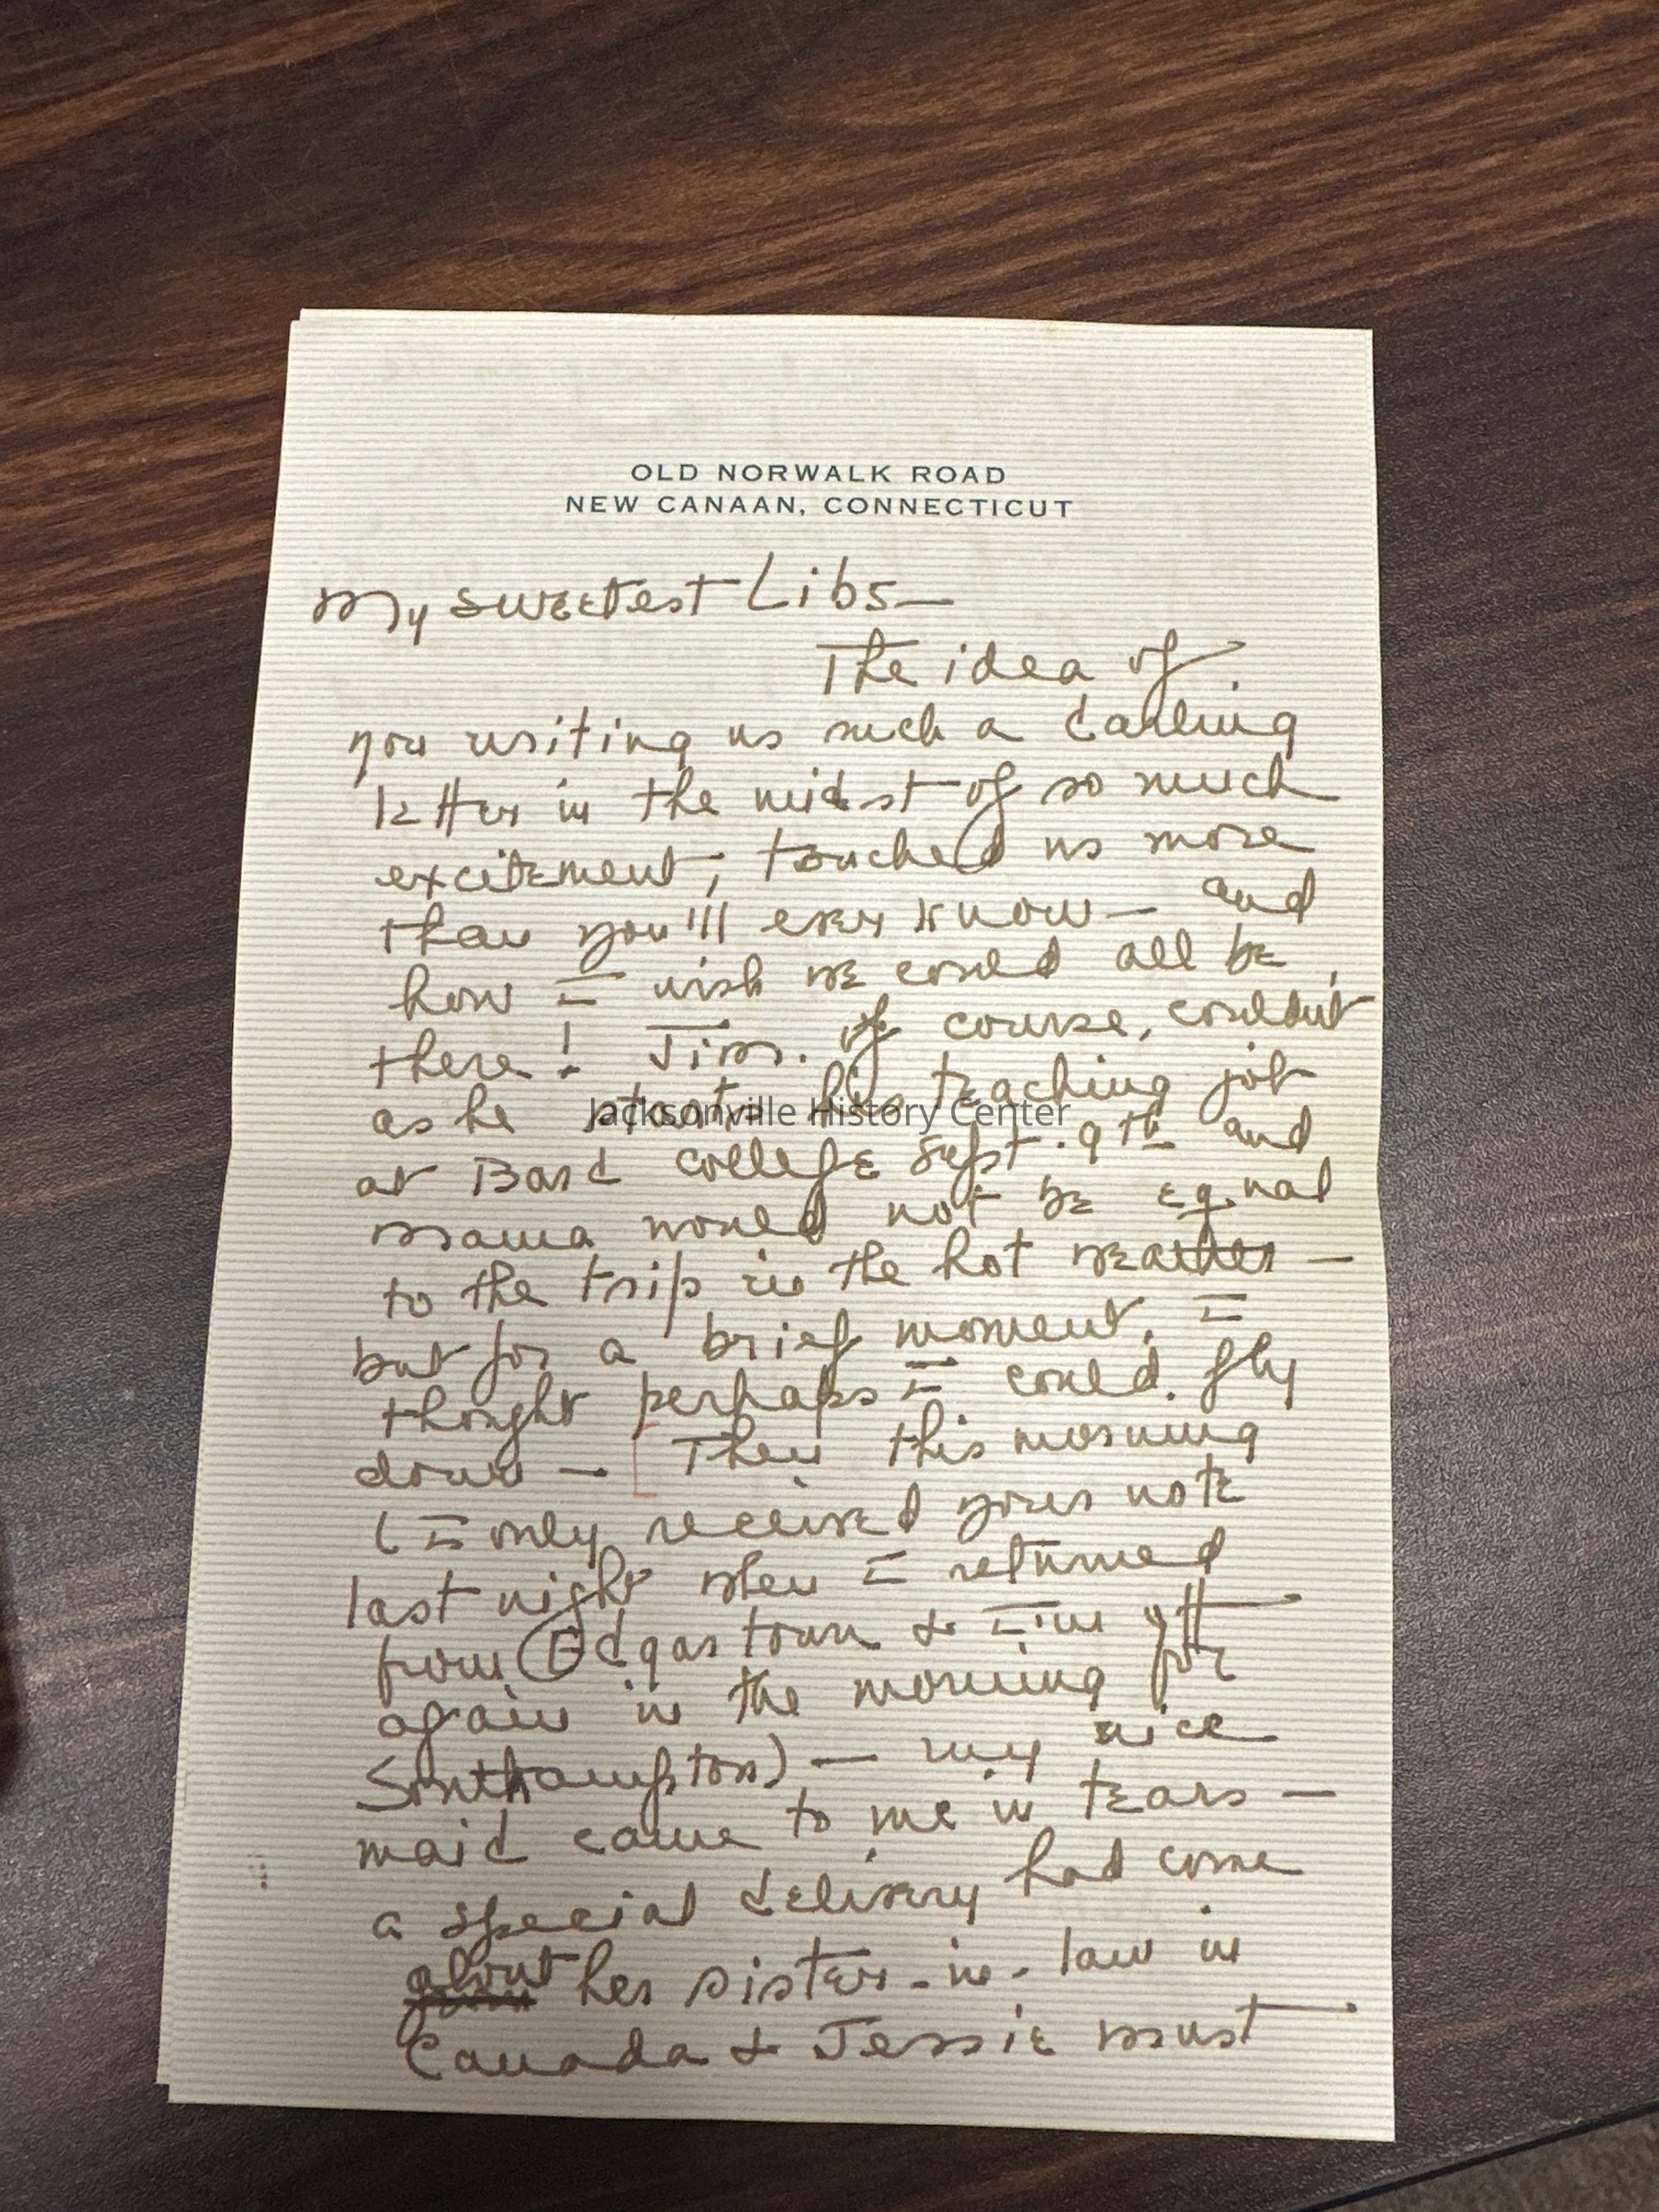 OLD NORWALK ROAD
NEW CANAAN, CONNECTICUT
My sweetest Libs—
The idea of
you writing us such a darling
letter in the midst of so much
excitement, touched us more
than you'll ever know — and
how I wish we could all be
there! Jim. of course, couldn't
as he starts his teaching job
at Bard college Sept. 9th and
Mama would not be equal
to the trip in the hot weather —
but for a brief moment, I
thought perhaps I could. fly
down — [ Then this morning
(I only received your note
last night when I returned
from Edgartown & I'm off
again in the morning for
Southampton) — my nice
maid came to me in tears —
a special delivery had come
about her sister-in-law in
Canada & Jessie must
Jacksonville History Center